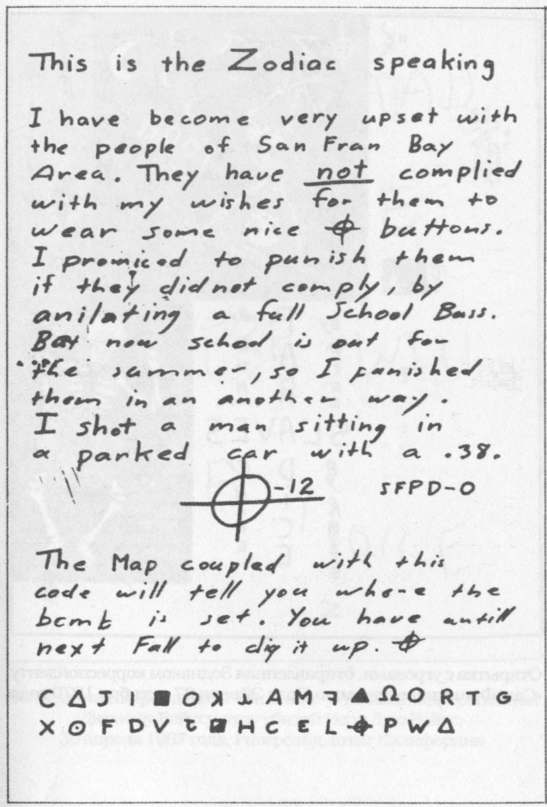 This is the Zodiac speaking
I have become very upset with
the people of San Fran Bay
Area. They have not complied
with my wishes for them to
wear some nice ⌖ buttons.
I promiced to punish them
if they did not comply, by
anilating a full School Buss.
But now school is out for
the summer, so I punished
them in an another way.
I shot a man sitting in
a parked car with a .38.
⌖-12 SFPD-0
The Map coupled with this
code will tell you whoe the
bomb is set. You have antill
next Fall to dig it up. ⌖
C Δ J I ■ O ꓘ ⅄ A M ꓶ ▲ Ω O R T G
X ⊙ F D V ⊞ H C E L ⌖ P W Δ